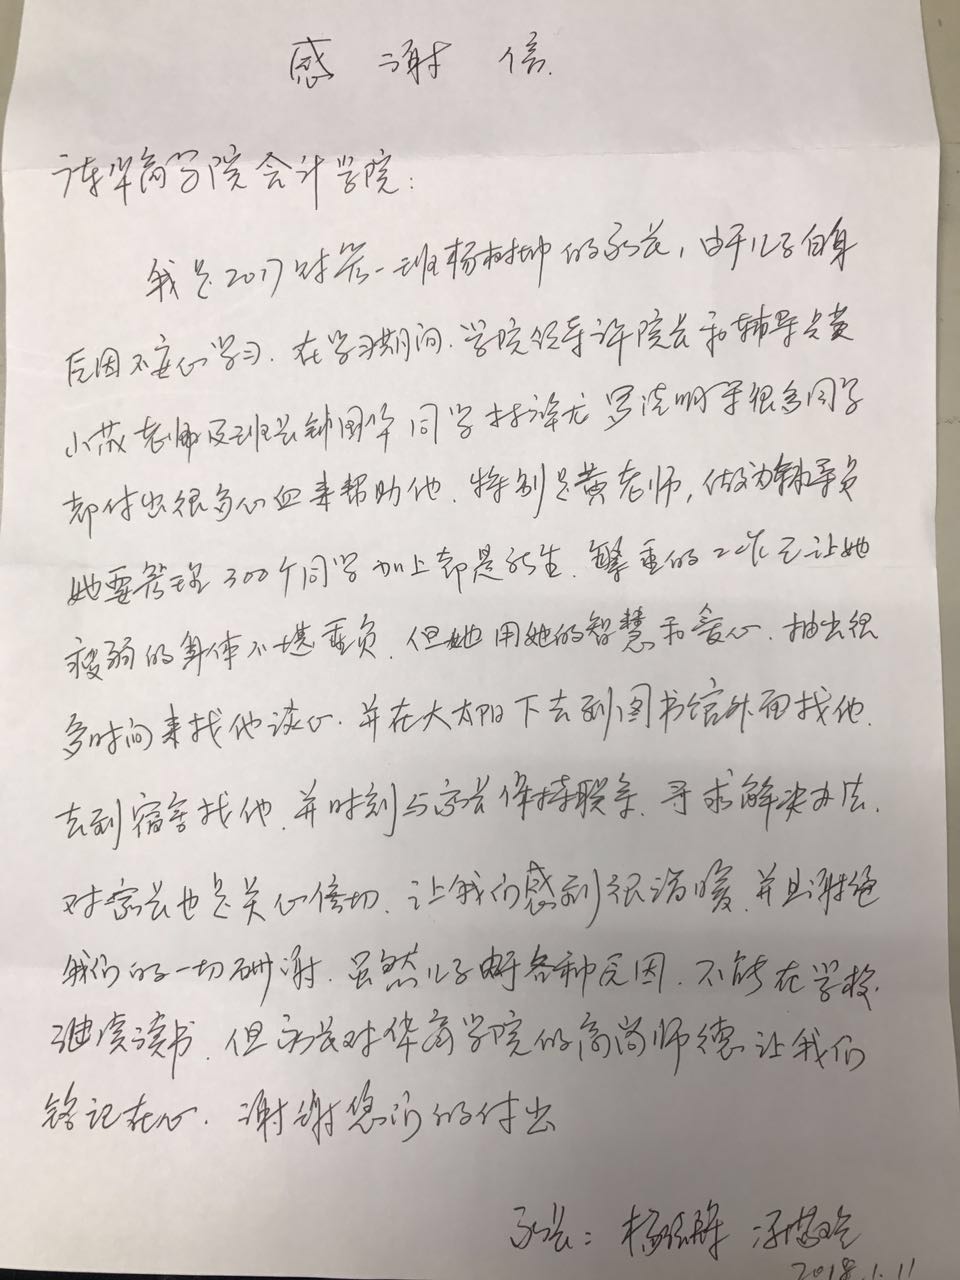 感谢信.
广东华商学院会计学院:
我是2017财管一班杨树坤的家长,由于儿子自身
原因不安心学习.在学习期间.学院领导许院长和辅导员黄
小燕老师及班长钟国华同学 罗浩明等很多同学
都付出很多心血来帮助他.特别是黄老师,做为辅导员
她要管理300个同学加上都是新生.繁重的工作已让她
瘦弱的身体不堪重负.但她用她的智慧和爱心.抽出很
多时间来找他谈心.并在大太阳下去到图书馆外面找他.
去到宿舍找他.并时刻与家长保持联系.寻求解决办法.
对家长也是关心倍切.让我们感到很温暖.并且谢绝
我们的一切酬谢.虽然儿子由于各种原因.不能在学校
继续读书.但家长对华商学院的高尚师德让我们
铭记在心.谢谢您们的付出
家长:杨 汪
2018.1.11